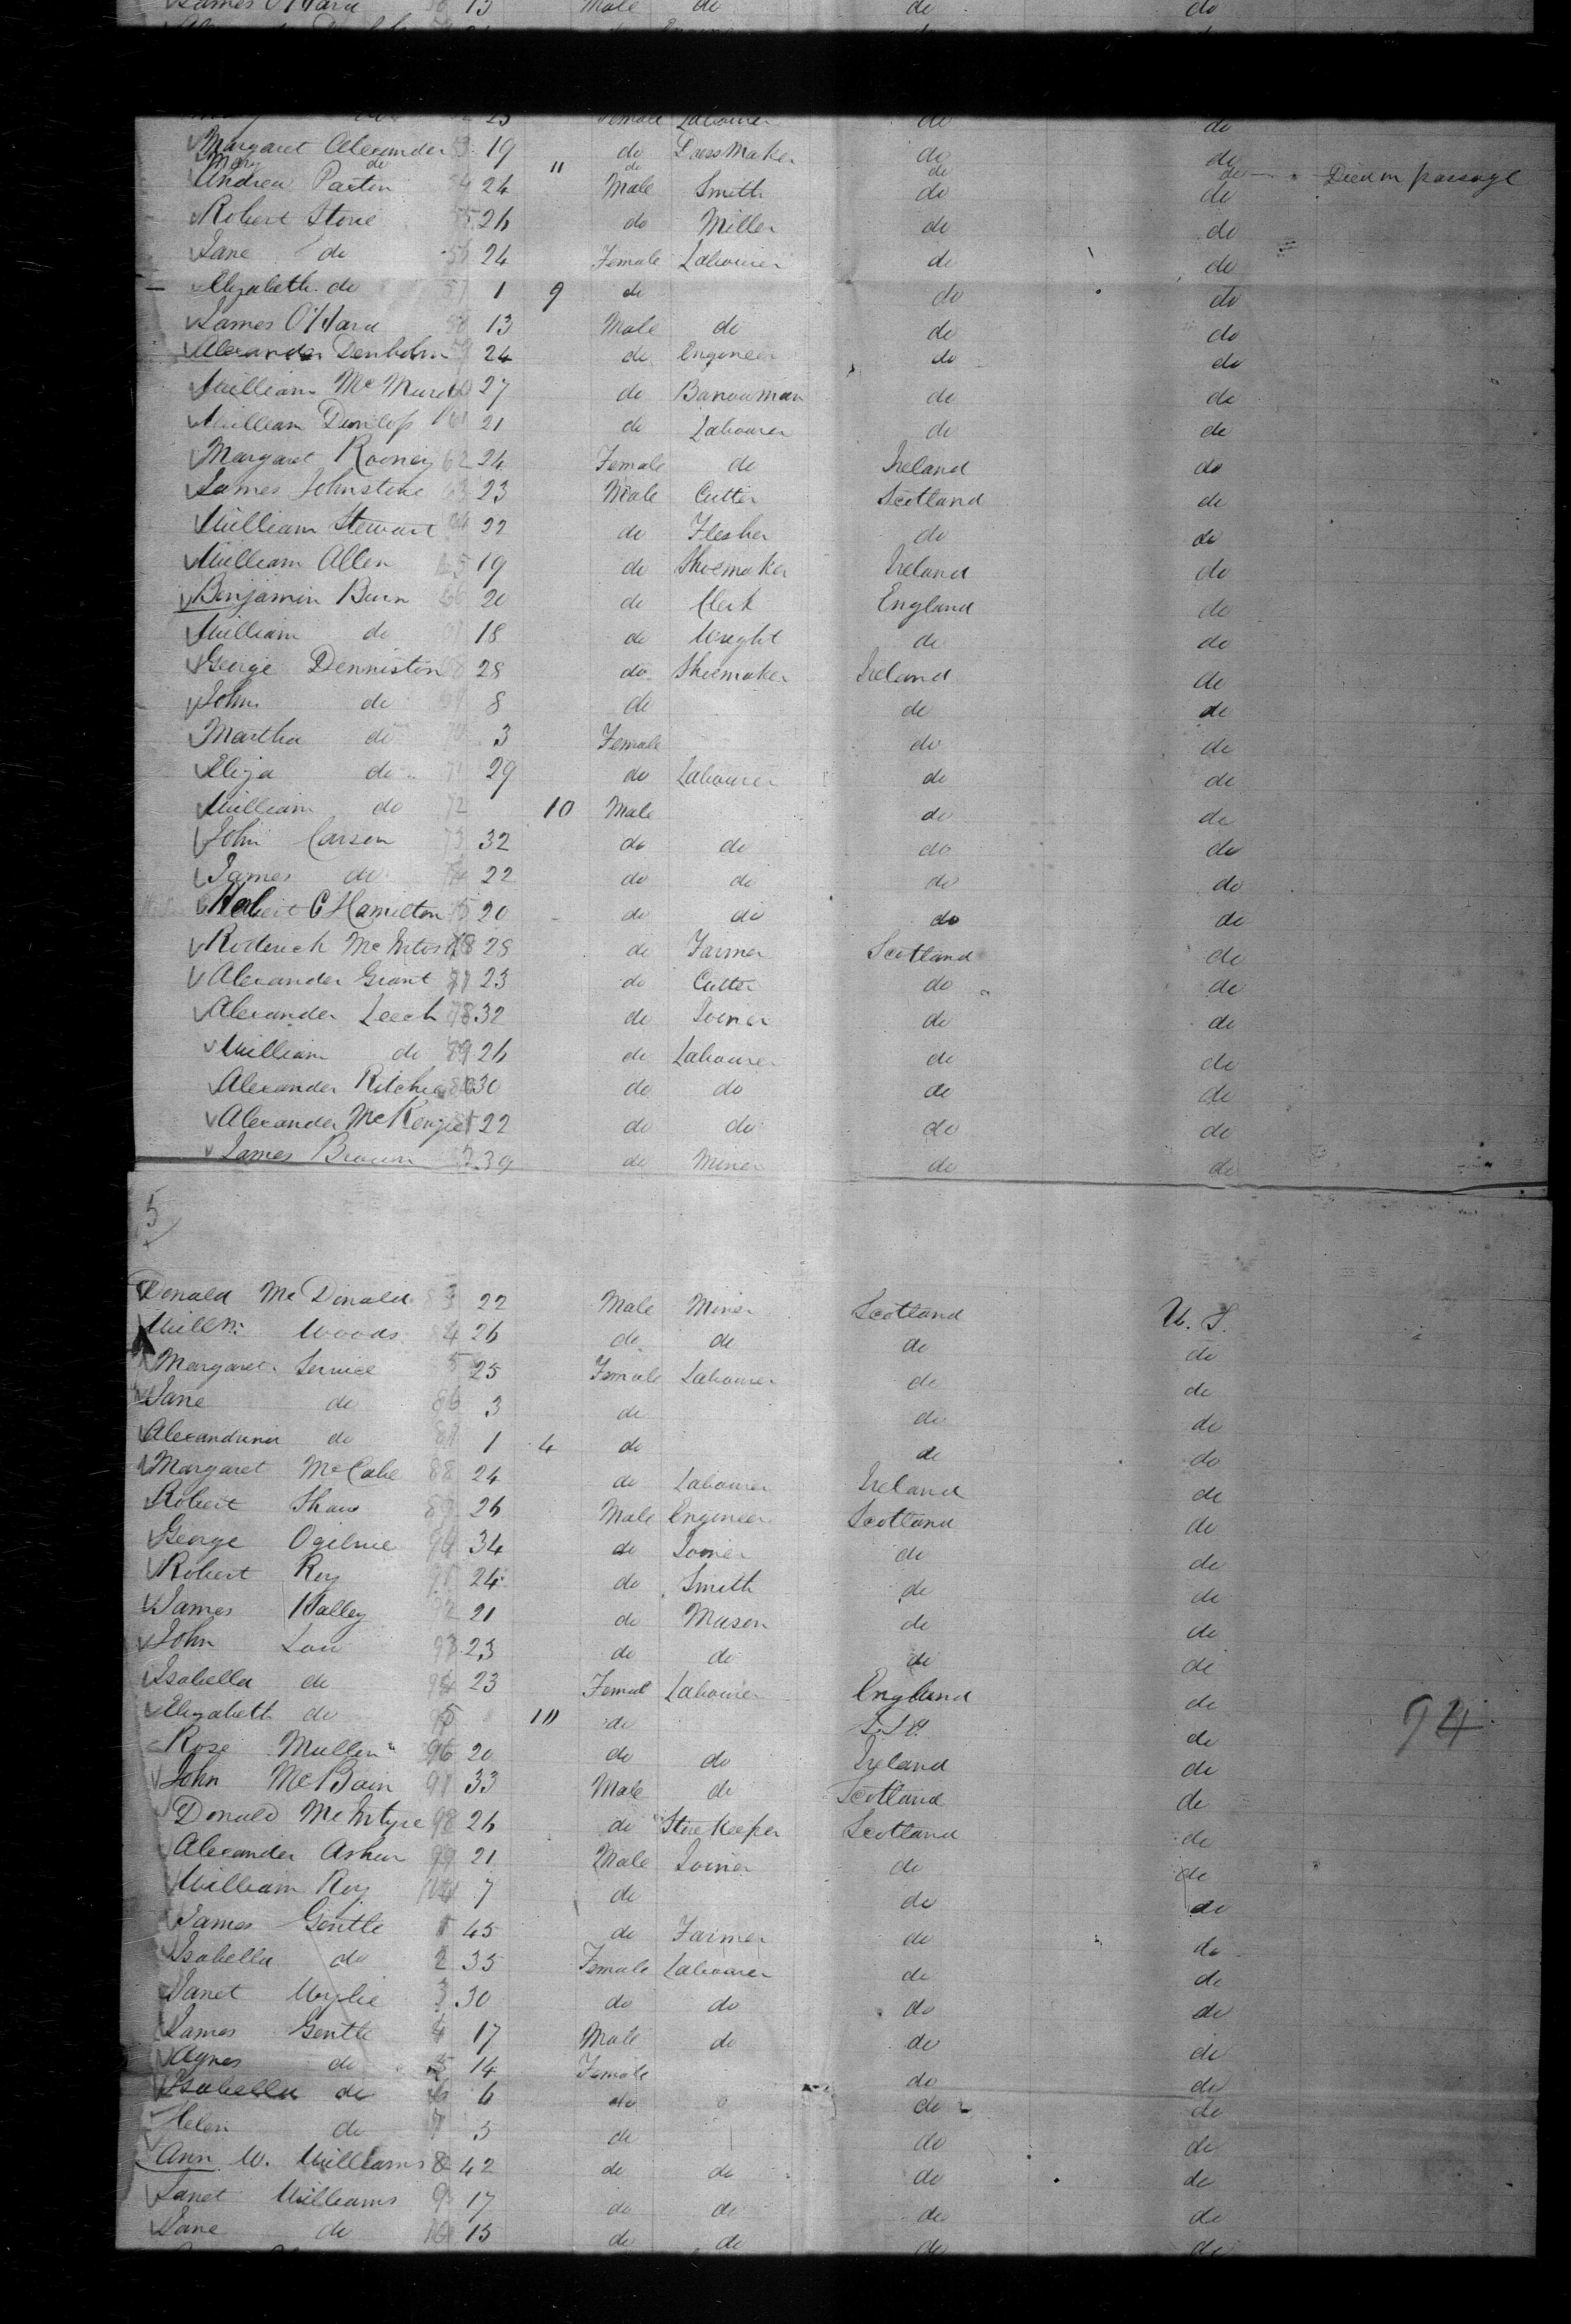 James O'Hara 13 Male do do do
23 Female Labourer do do
Margaret Alexander 53 19 do DressMaker do do
Mary do " do do do Died on passage
Andrew Paxton 54 24 Male Smith do do
Robert Storie 55 26 do Miller do do
Jane do 56 24 Female Labourer do do
Elizabeth do 57 1 9 do do do
James O'Hara 58 13 Male do do do
Alexander Denholm 59 24 do Engineer do do
William McMurd 27 do Banowman do do
William Dunlop 61 21 do Labourer do do
Margaret Rooney 62 24 Female do Ireland do
James Johnstone 63 23 Male Cutter Scotland do
William Stewart 64 22 do Flesher do do
William Allen 65 19 do Shoemaker Ireland do
Benjamin Burn 66 20 do Clerk England do
William do 67 18 do Wright do do
George Denniston 68 28 do Shoemaker Ireland do
John do 69 8 do do do
Martha do 70 3 Female do do
Eliza do 71 29 do Labourer do do
William do 72 10 Male do do
John Carson 73 32 do do do do
James do 74 22 do do do do
Robert C Hamilton 75 20 do do do do
Roderick McIntosh 28 do Farmer Scotland do
Alexander Grant 77 23 do Cutter do do
Alexander Leech 78 32 do Joiner do do
William do 79 26 do Labourer do do
Alexander Ritchie 80 30 do do do do
Alexander McKenzie 81 22 do do do do
James Brown 39 do Miner do do
5
Donald McDonald 83 22 Male Miner Scotland U.S.
Willm Woods 84 26 do do do do
Margaret Service 5 25 Female Labourer do do
Jane do 86 3 do do do
Alexandrina do 87 1 4 do do do
Margaret McCabe 88 24 do Labourer Ireland do
Robert Shaw 89 26 Male Engineer Scotland do
George Ogilvie 90 34 do Joiner do do
Robert Roy 91 24 do Smith do do
James Halley 92 21 do Mason do do
John Law 93 23 do do do do
Isabella do 94 23 Femal Labourer England do
Elizabeth do 95 10 do do
Rose Mullen 96 20 do do Ireland do
John McBain 97 33 Male do Scotland do
Donald McIntyre 98 26 do StoreKeeper Scotland do
Alexander Asher 99 21 Male Joiner do do
William Roy 100 7 do do do
James Gentle 1 45 do Farmer do do
Isabella do 2 35 Female Labourer do do
Janet Wylie 3 30 do do do do
James Gentle 4 17 Male do do do
Agnes do 5 14 Female do do
Isabella do 6 6 do do do
Helen do 7 5 do do do
Ann W. Williams 8 42 do do do do
Janet Williams 9 17 do do do do
Jane do 10 15 do do do do
94